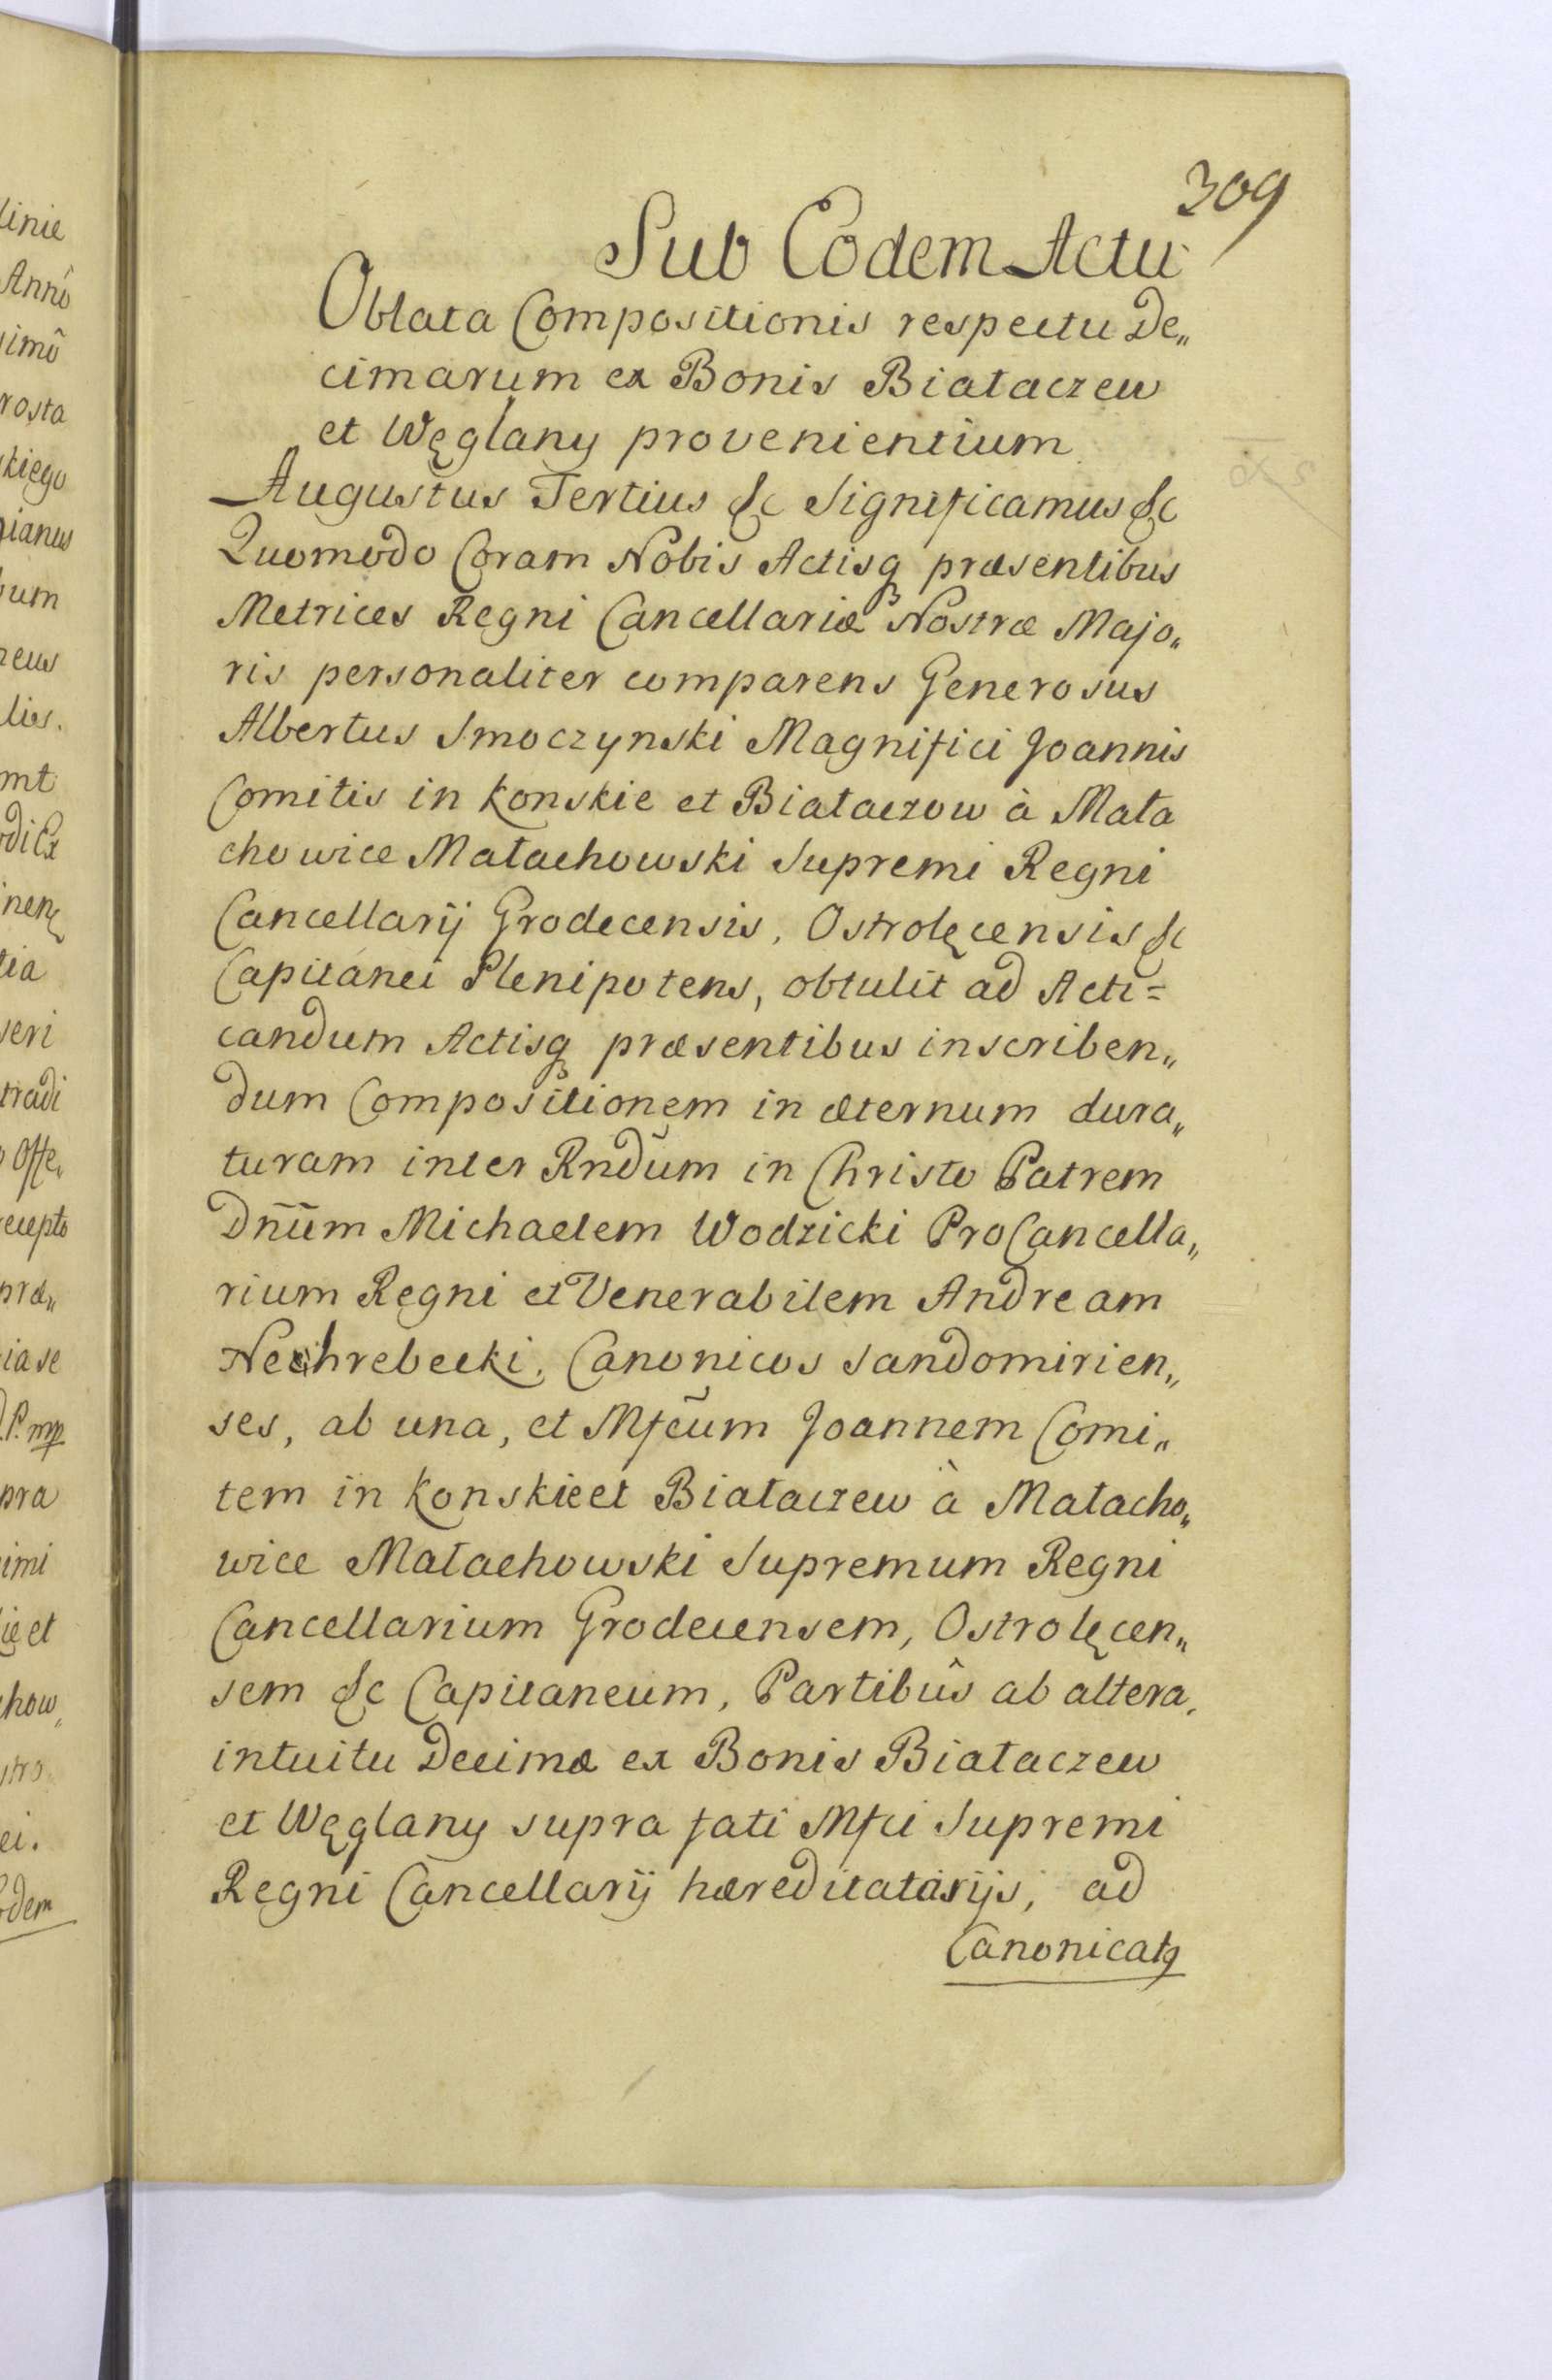 309
Sub Eodem Actu
Oblata Compositionis respectu De„
cimarum ex Bonis Białaczew
et Węglany provenientium
Augustus Tertius &c Significamus &c
Quomodo Coram Nobis Actisq præsentibus
Metrices Regni Cancellariæ Nostræ Majo„
ris personaliter comparens Generosus
Albertus Smoczynski Magnifici Joannis
Comitis in Konskie et Białaczow à Mała
chowice Małachowski Supremi Regni
Cancellarij Grodecensis, Ostrolęcensis &c
Capitanei Plenipotens, obtulit ad Acti=
candum Actisq præsentibus inscriben„
dum Compositionem in æternum dura„
turam inter Rndũm in Christo Patrem
Dnũm Michaelem Wodzicki ProCancella„
rium Regni et Venerabilem Andream
Nechrebecki, Canonicos Sandomirien„
ses, ab una, et Mfcũm Joannem Comi„
tem in Konskie et Białaczew à Małacho„
wice Małachowski Supremum Regni
Cancellarium Grodecensem, Ostrolęcen„
sem &c Capitaneum, Partibûs ab altera,
intuitu Decimæ ex Bonis Białaczew
et Węglany supra fati Mfci Supremi
Regni Cancellarij hæreditatarijs, ad
Canonicatq